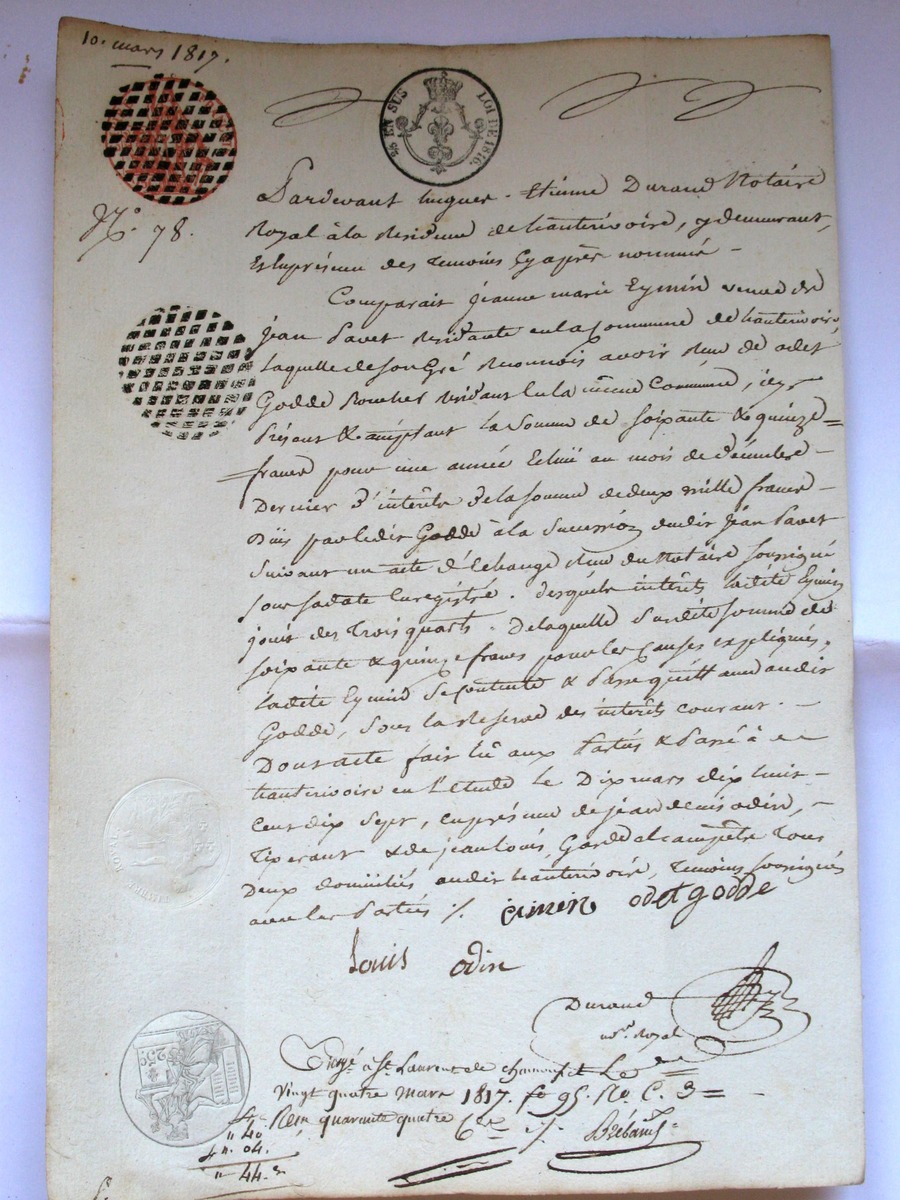 10. mars 1817.
25 EN SUS LOI DE 1816.
N.o 78.
Pardevant hugues - Etienne Durand Notaire
Royal à la Residence de hauterivoire, y demeurant,
Et en présence des temoins Cy après nommés -
Comparait jeanne marie Eymin veuve de
jean Pavet Residante en la Commune de hauterivoire,
Laquelle de son Gré Reconnois avoir Reçu de odet
Godde Rocher résidant en la même Commune, icy
Présent & acceptant la Somme de soixante & quinze =
= francs pour une année Echue au mois de décembre -
Dernier d'intérêts de la somme de deux mille francs -
Düs par ledit Godde à la Succession dudit Jean Pavet
Suivant un acte d'échange Reçu du Notaire soussigné
sous sa date Enregistré. desquels intérêts ladite Eymin
jouit des trois quarts. De laquelle Susdite somme de
soixante & quinze francs pour les Causes expliquées,
Ladite Eymin se Contente & Passe quittance audit
Godde, sous la Reserve des intérêts courant. -
Dont acte fait lû aux Parties & Passé à
hauterivoire en l'Etude le Dix mars dix huit -
Cent dix Sept, en présence de jean denis odin, -
Tixerant & de jean Louis, Garde champêtre tous
Deux domiciliés audit hauterivoire, temoins soussignés
avec les Parties ./.
eimin odet godde
Louis odin
Durand
no.re Royal
Enrgé à St. Laurent de chamousset Le
Vingt quatre Mars 1817. fo 95. Ro. C. 3 =
Reçu quarante quatre C.es ./.
4.
" 40
4 ". 04.
" 44.c
25c